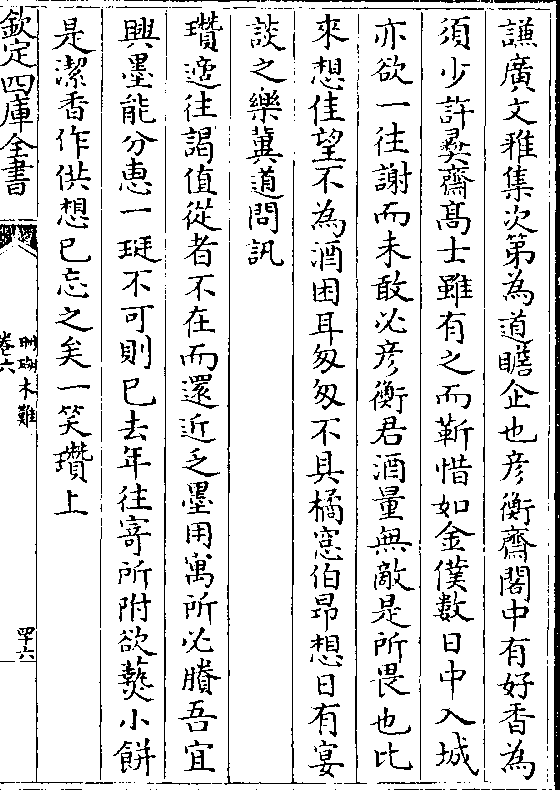 謙廣文雅集次第為道瞻企也彦衡齋閣中有好香為
須少許彛齋髙士雖有之而靳惜如金僕數日中入城
亦欲一往謝而未敢必彦衡君酒量無敵是所畏也比
來想佳望不為酒困耳匆匆不具橘窓伯昻想日有宴
談之樂冀道問訊
瓚適往謁值從者不在而還近乏墨用寓所必賸吾宜
興墨能分恵一珽不可則已去年往寄所附欲爇小餅
是潔香作供想已忘之矣一笑瓚上
欽定四庫全書
珊瑚木難
卷六
罕六